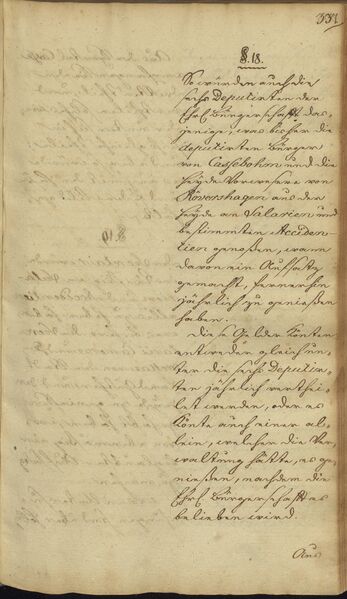 331
§. 18.
So würden auch die
sechs Deputirten der
Ehrl. Bürgerschafft das-
jenige, was bisher die
deputirten Bürger
von Cassebohm und die
Heyde Vorwesere von
Rövershagen aus der
Heyde an Salarien und
bestimmten Acciden-
tien genoßen, wann
davon ein Aufsatz
gemacht, fernerhin
jährlich zu genießen
haben.
Diese Gelder könten
entweder gleich un-
ter die sechs Deputir-
ten jährlich verthei-
let werden, oder es
könte auch einer al-
lein, welcher die Ver-
waltung hätte, es ge-
nießen, nachdem die
Ehrl. Bürgerschafft es
belieben wird.
Aus